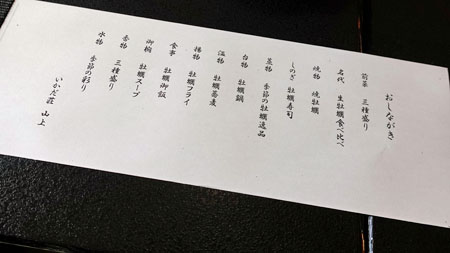 おしながき
前菜 三種盛り
名代 生牡蠣食べ比べ
焼物 焼牡蠣
しのぎ 牡蠣寿司
蒸物 季節の牡蠣逸品
台物 牡蠣鍋
温物 牡蠣蕎麦
揚物 牡蠣フライ
食事 牡蠣御飯
御椀 牡蠣スープ
香物 三種盛り
水物 季節の彩り
いかだ荘 山上